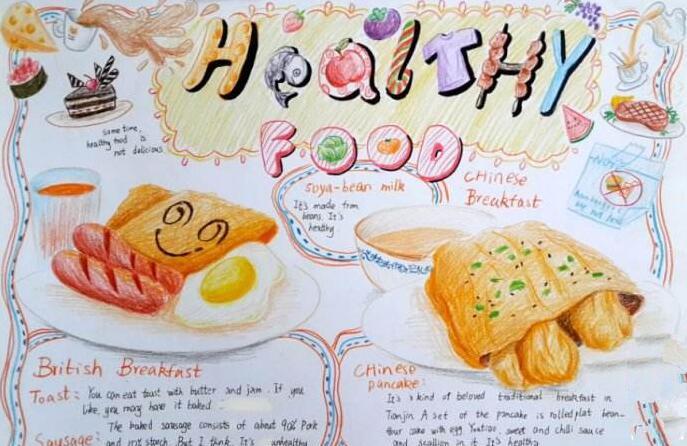 HEALTHY
FOOD
some time,
healthy food is
not delicious
soya-bean milk
It's made from
beans. It's
healthy.
Chinese
Breakfast
British Breakfast
Toast: You can eat toast with butter and jam. If you
like, you may have it baked.
Sausage: The baked sausage consists of about 90% Pork
and starch. But I think. It's unhealthy
Chinese
pancake:
It's a kind of beloved traditional breakfast in
Tianjin. A set of the pancake is rolled flat bean-
flour cake with egg Youtiao, sweet and chilli sauce
and scallion in it. It's healthy